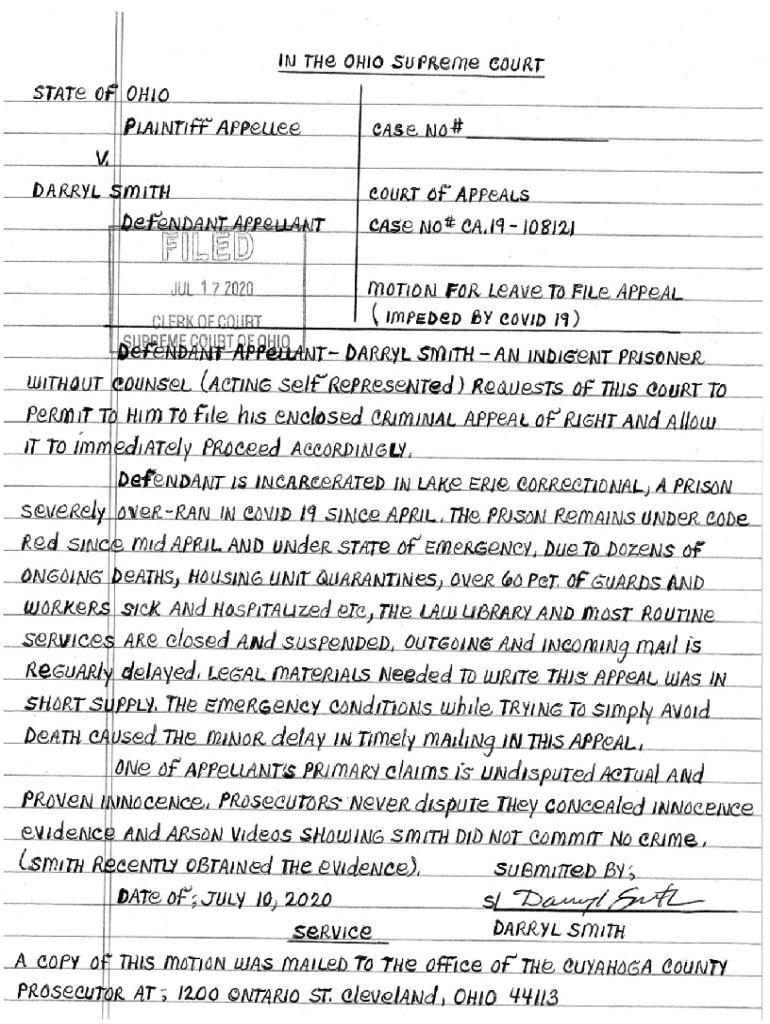 IN THE OHIO SUPREME COURT
STATE OF OHIO
PLAINTIFF APPELLEE
CASE NO#
V.
DARRYL SMITH
COURT OF APPEALS
DEFENDANT APPELLANT
CASE NO# CA.19-108121
FILED
JUL 17 2020
MOTION FOR LEAVE TO FILE APPEAL
CLERK OF COURT
(IMPEDED BY COVID 19)
SUPREME COURT OF OHIO
DEFENDANT APPELLANT-DARRYL SMITH-AN INDIGENT PRISONER
WITHOUT COUNSEL (ACTING SELF REPRESENTED) REQUESTS OF THIS COURT TO
PERMIT TO HIM TO FILE HIS ENCLOSED CRIMINAL APPEAL OF RIGHT AND ALLOW
IT TO IMMEDIATELY PROCEED ACCORDINGLY.
DEFENDANT IS INCARCERATED IN LAKE ERIE CORRECTIONAL, A PRISON
SEVERELY OVER-RAN IN COVID 19 SINCE APRIL. THE PRISON REMAINS UNDER CODE
RED SINCE MID APRIL AND UNDER STATE OF EMERGENCY, DUE TO DOZENS OF
ONGOING DEATHS, HOUSING UNIT QUARANTINES, OVER 60 PCT. OF GUARDS AND
WORKERS SICK AND HOSPITALIZED ETC, THE LAW LIBRARY AND MOST ROUTINE
SERVICES ARE CLOSED AND SUSPENDED, OUTGOING AND INCOMING MAIL IS
REGUARLY DELAYED. LEGAL MATERIALS NEEDED TO WRITE THIS APPEAL WAS IN
SHORT SUPPLY. THE EMERGENCY CONDITIONS WHILE TRYING TO SIMPLY AVOID
DEATH CAUSED THE MINOR DELAY IN TIMELY MAILING IN THIS APPEAL.
ONE OF APPELLANT'S PRIMARY CLAIMS IS UNDISPUTED ACTUAL AND
PROVEN INNOCENCE. PROSECUTORS NEVER DISPUTE THEY CONCEALED INNOCENCE
EVIDENCE AND ARSON VIDEOS SHOWING SMITH DID NOT COMMIT NO CRIME.
(SMITH RECENTLY OBTAINED THE EVIDENCE).
SUBMITTED BY;
DATE OF; JULY 10, 2020
S/ Darryl Smith
SERVICE
DARRYL SMITH
A COPY OF THIS MOTION WAS MAILED TO THE OFFICE OF THE CUYAHOGA COUNTY
PROSECUTOR AT; 1200 ONTARIO ST. CLEVELAND, OHIO 44113